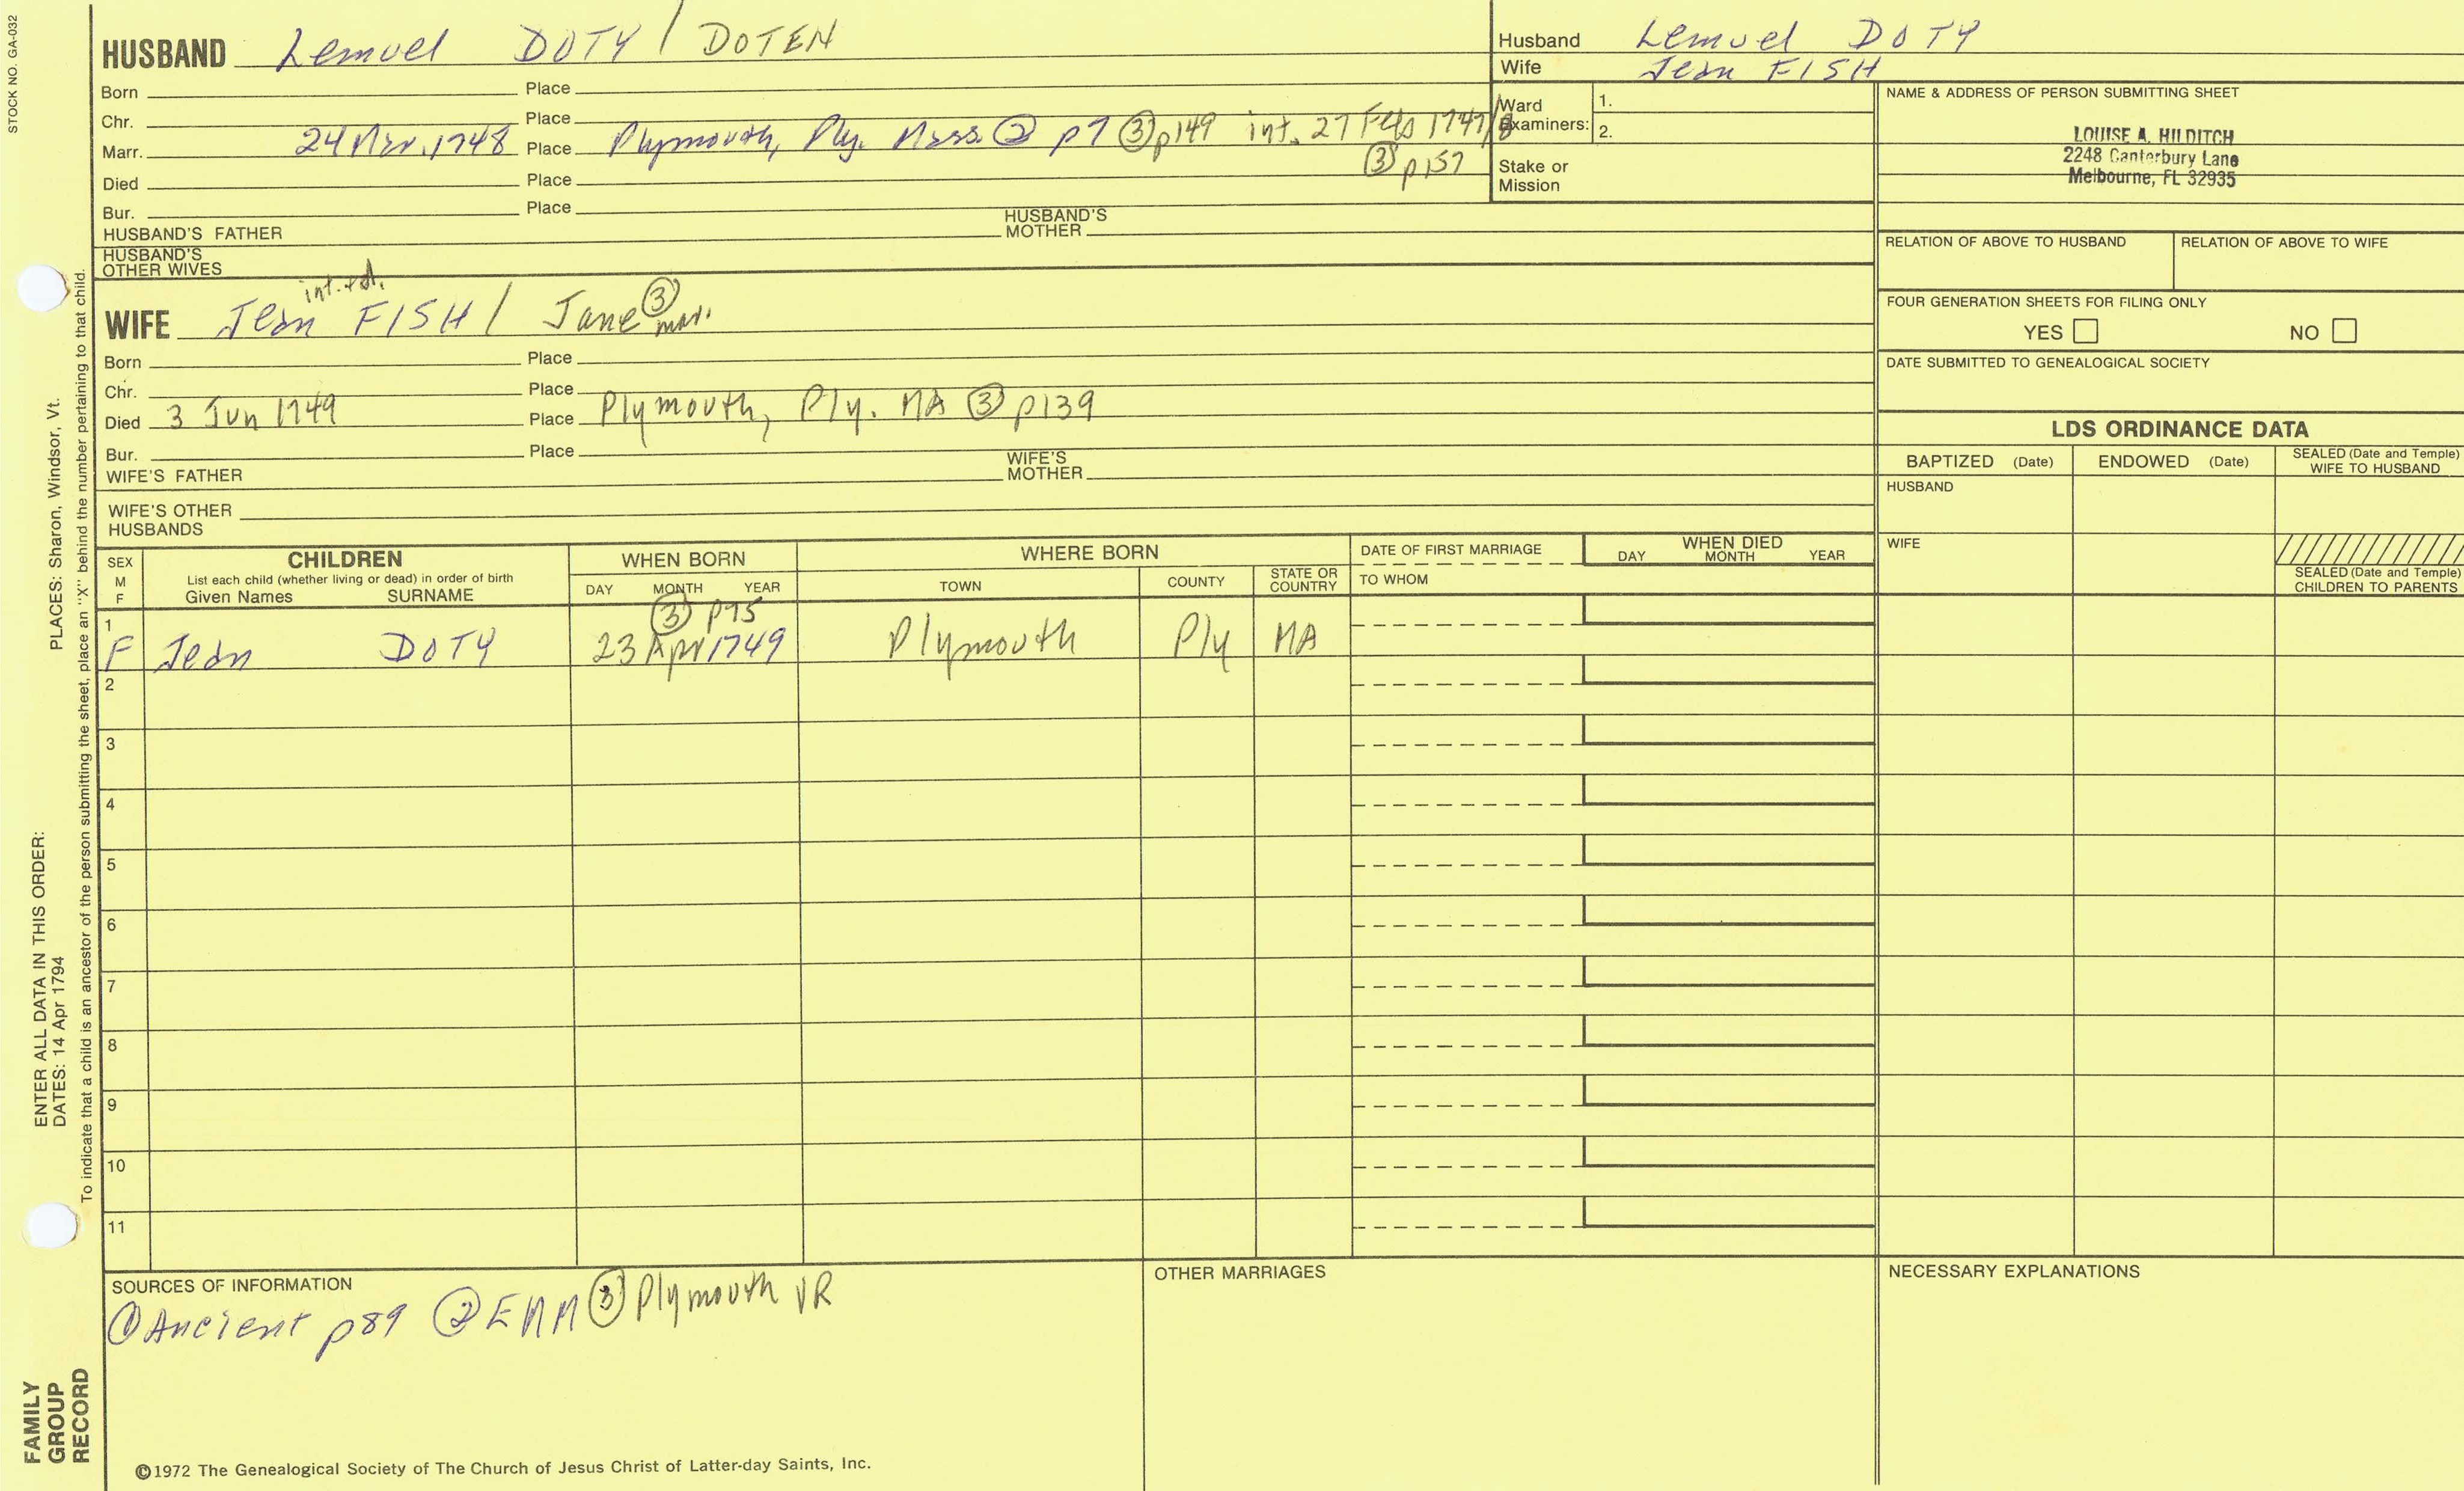 STOCK NO. GA-032
HUSBAND Lemuel DOTY / DOTEN
Born Place
Chr. Place
Marr. 24 Mar. 1748 Place Plymouth, Ply. Mass. ② p7 ③ p149 int. 27 Feb 1747/8
③ p157
Died Place
Bur. Place
HUSBAND'S FATHER HUSBAND'S MOTHER
HUSBAND'S OTHER WIVES
Husband Lemuel DOTY
Wife Jean FISH
Ward Examiners: 1.
2.
Stake or Mission
NAME & ADDRESS OF PERSON SUBMITTING SHEET
LOUISE A. HILDITCH
2248 Canterbury Lane
Melbourne, FL 32935
RELATION OF ABOVE TO HUSBAND RELATION OF ABOVE TO WIFE
FOUR GENERATION SHEETS FOR FILING ONLY
YES NO
DATE SUBMITTED TO GENEALOGICAL SOCIETY
int. + d.
WIFE Jean FISH / Jane ③ mar.
Born Place
Chr. Place
Died 3 Jun 1749 Place Plymouth, Ply. MA ③ p139
Bur. Place
WIFE'S FATHER WIFE'S MOTHER
WIFE'S OTHER HUSBANDS
LDS ORDINANCE DATA
BAPTIZED (Date) ENDOWED (Date) SEALED (Date and Temple) WIFE TO HUSBAND
HUSBAND
WIFE
SEALED (Date and Temple) CHILDREN TO PARENTS
SEX M F
CHILDREN
List each child (whether living or dead) in order of birth
Given Names SURNAME
WHEN BORN
DAY MONTH YEAR
WHERE BORN
TOWN COUNTY STATE OR COUNTRY
DATE OF FIRST MARRIAGE
TO WHOM
WHEN DIED
DAY MONTH YEAR
③ p75
1 F Jean DOTY 23 Apr 1749 Plymouth Ply MA
2
3
4
5
6
7
8
9
10
11
SOURCES OF INFORMATION
① Ancient p89 ② EMM ③ Plymouth VR
OTHER MARRIAGES
NECESSARY EXPLANATIONS
©1972 The Genealogical Society of The Church of Jesus Christ of Latter-day Saints, Inc.
FAMILY GROUP RECORD
ENTER ALL DATA IN THIS ORDER:
DATES: 14 Apr 1794 PLACES: Sharon, Windsor, Vt.
To indicate that a child is an ancestor of the person submitting the sheet, place an "X" behind the number pertaining to that child.